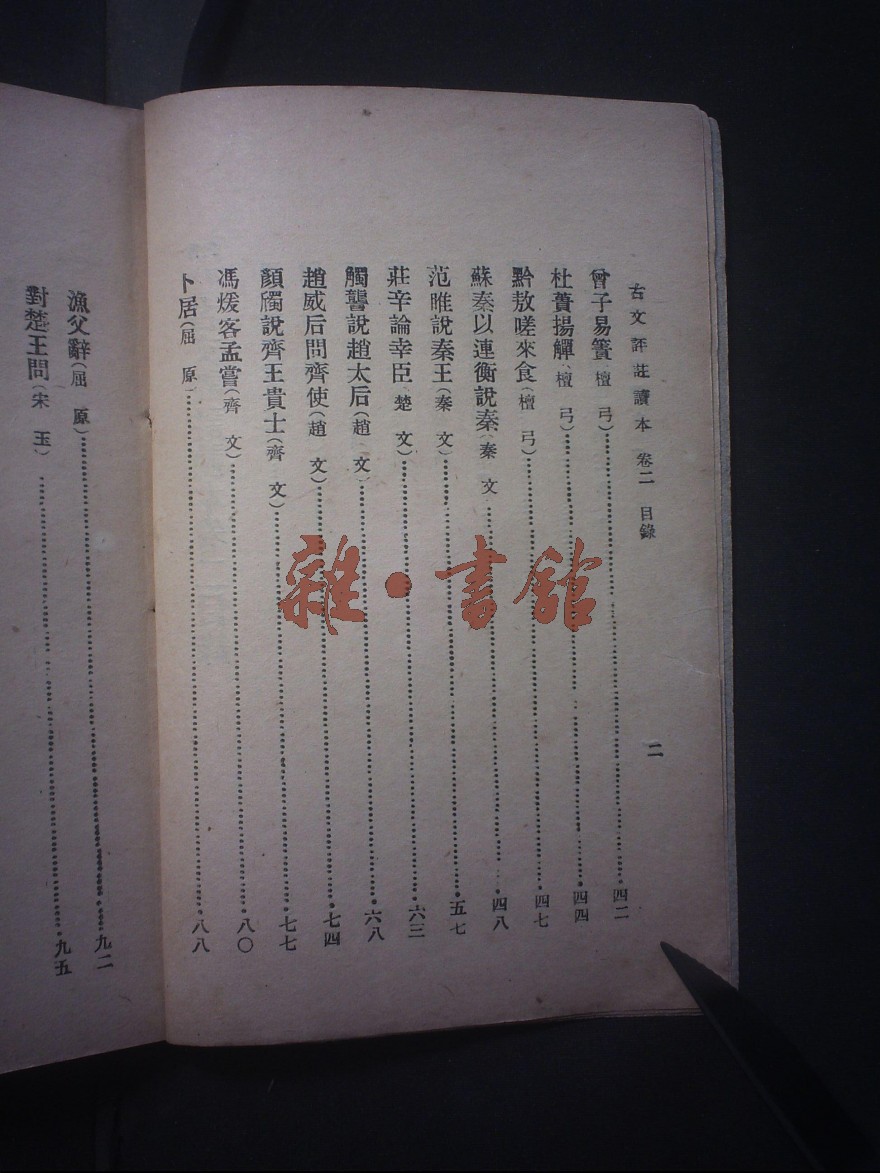 古文評註讀本 卷二 目錄 二
曾子易簀(檀弓)……四二
杜蕢揚觶(檀弓)……四四
黔敖嗟來食(檀弓)……四七
蘇秦以連衡說秦(秦文……四八
范睢說秦王(秦文)……五七
莊辛論幸臣(楚文)……六三
觸讋說趙太后(趙文)……六八
趙威后問齊使(趙文)……七四
顏斶說齊王貴士(齊文)……七七
馮煖客孟嘗(齊文)……八〇
卜居(屈原)……八八
漁父辭(屈原)……九二
對楚王問(宋玉)……九五
雜·書館